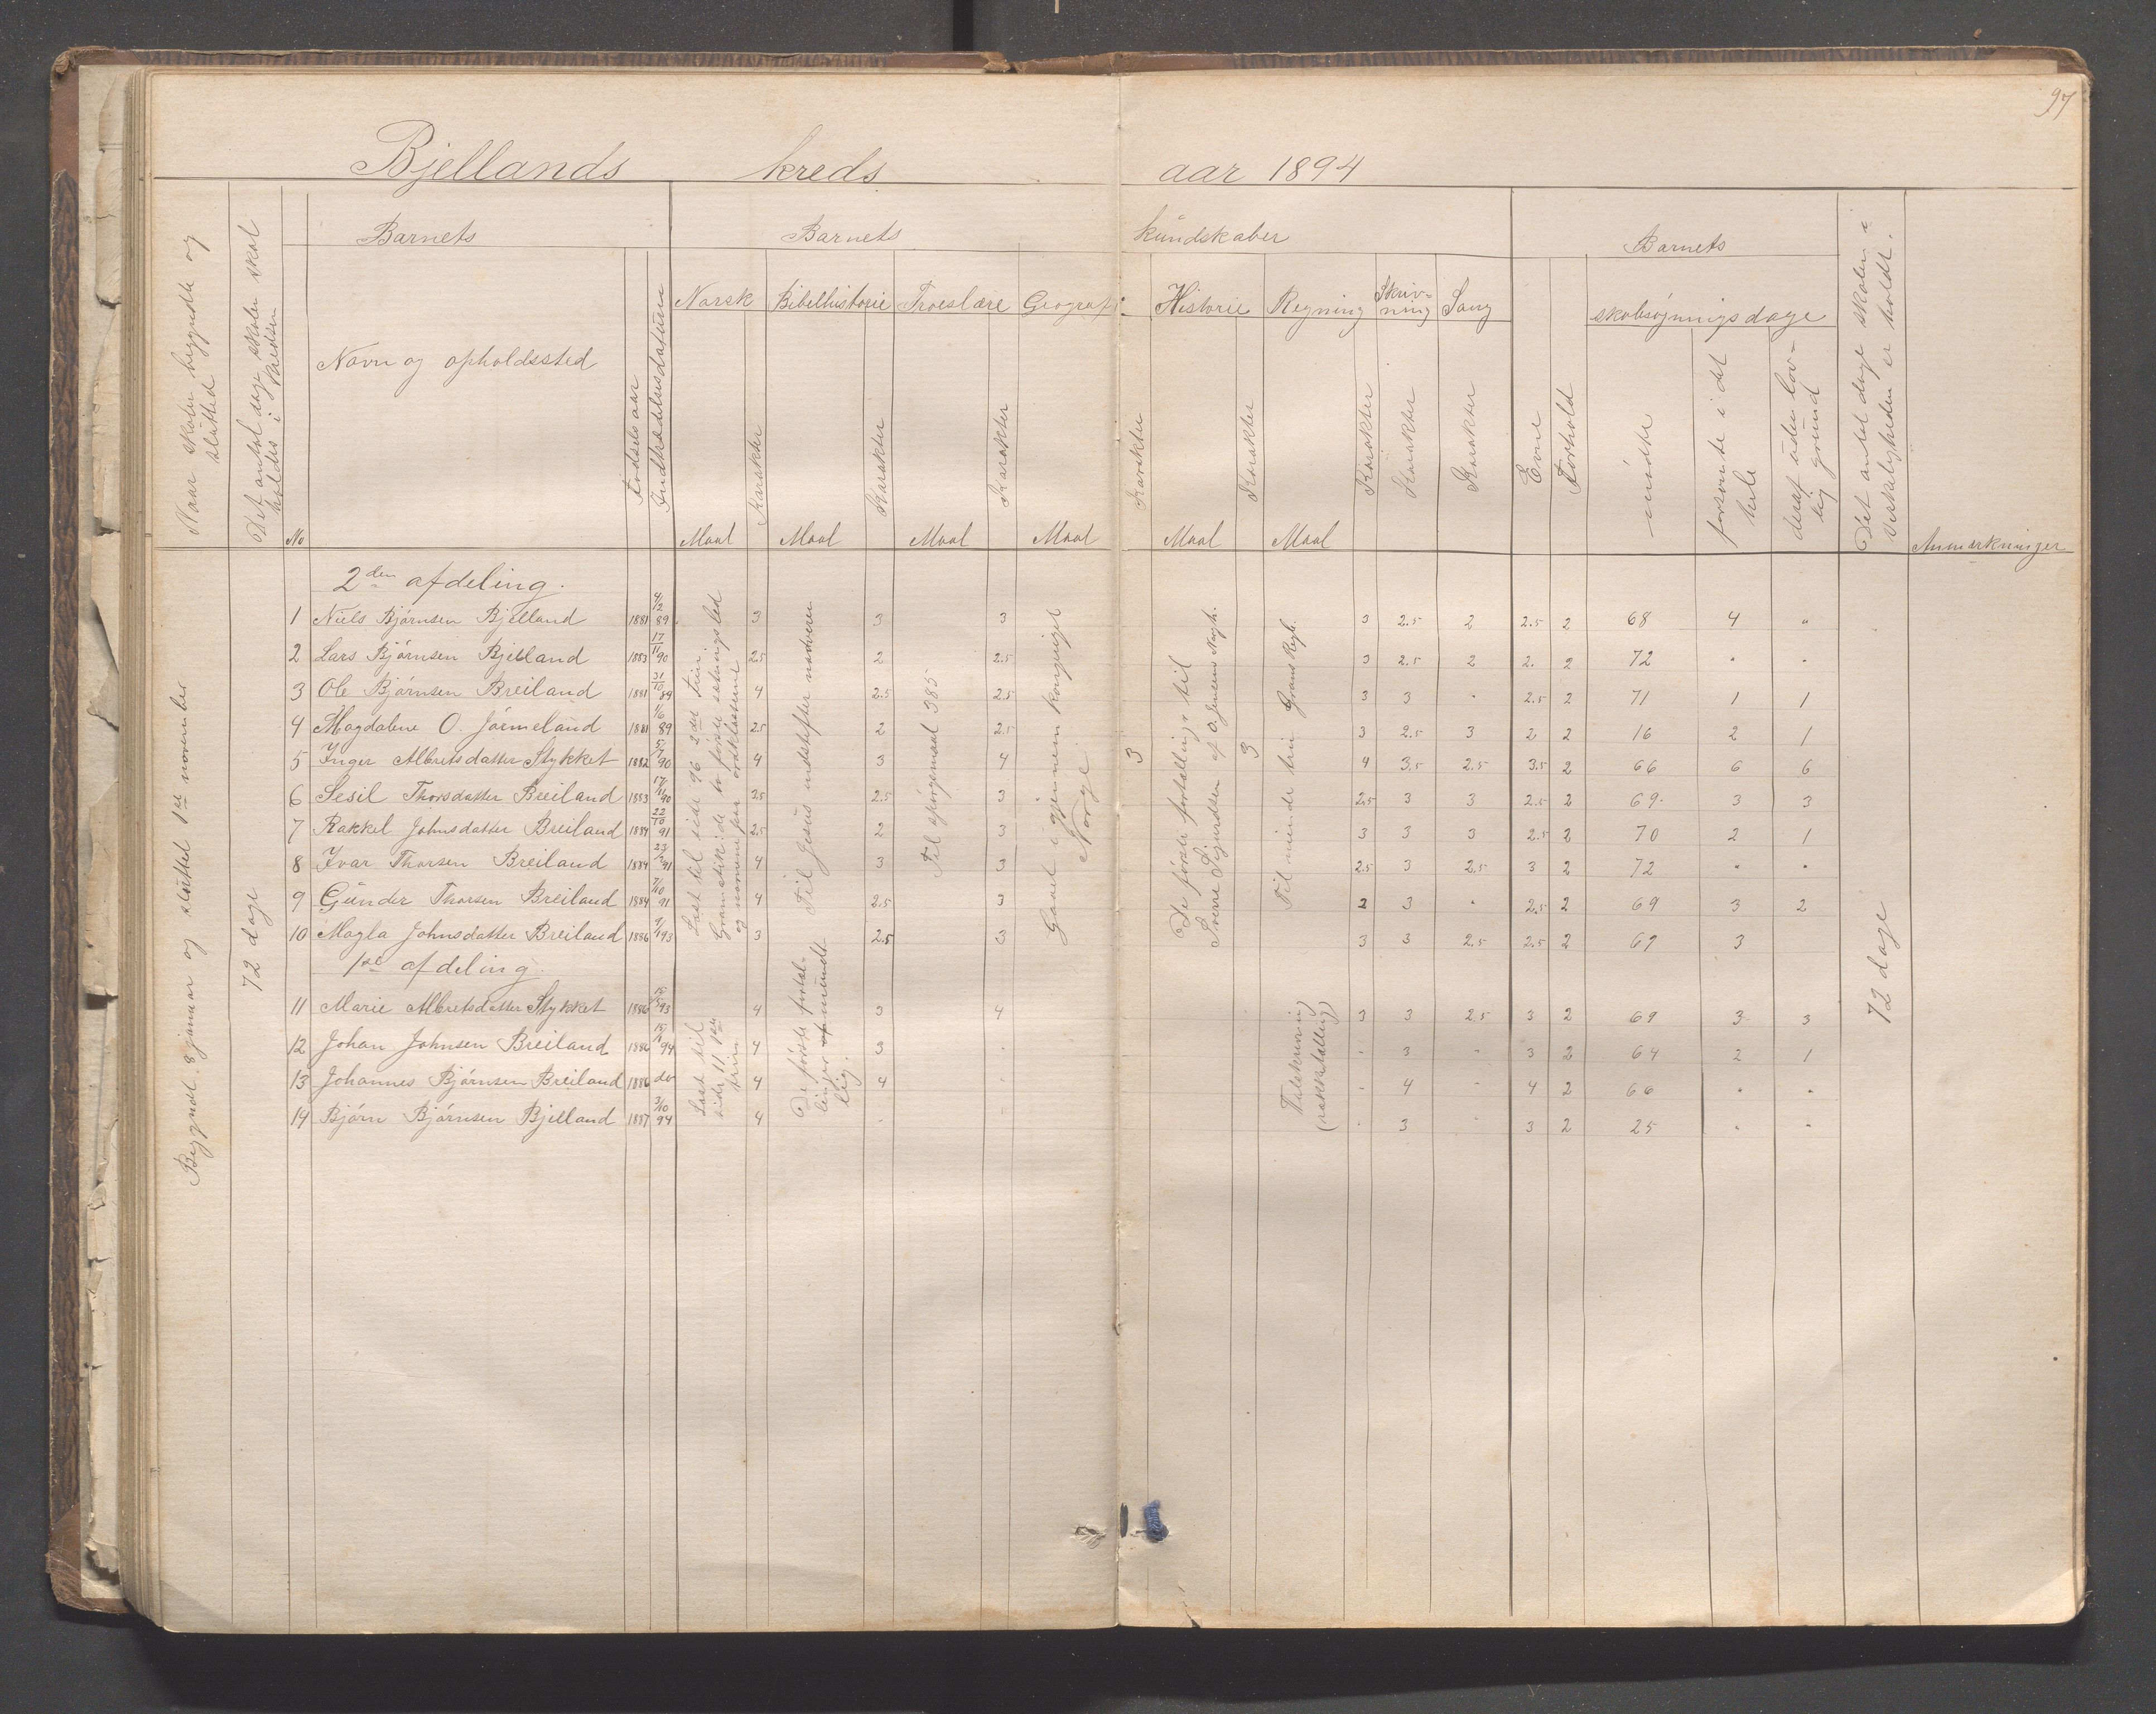 97
Bjellands kreds aar 1894
Naar skolen begyndte og slutted
Det antal dage skolen skal holdes i kredsen
No
Barnets
Navn og opholdssted
Fødselsaar
Indtrædelsesdatum
Barnets kundskaber
Norsk Bibelhistorie Troeslære Geografi Historie Regning Skrivning Sang
Maal Karakter Maal Karakter Maal Karakter Maal Karakter Maal Karakter Maal Karakter Karakter Karakter
Evne Forhold
Barnets
skolesøgningsdage
mødte
forsømte i det hele
deraf uden lovlig grund
Det antal dage skolen i virkeligheden er holdt.
Anmærkninger
Begyndt 8 januar og sluttet 1ste november
72 dage
2den afdeling.
1 Niels Bjørnsen Bjelland 1881 4/12 89 3 3 3 3 2.5 2 2.5 2 68 4 "
2 Lars Bjørnsen Bjelland 1883 17/11 90 2.5 2 2.5 3 2.5 2 2. 2 72 " "
3 Ole Bjørnsen Breiland 1881 31/10 89 4 2.5 2.5 3 3 " 2.5 2 71 1 1
4 Magdalene O. Jørmeland 1881 1/6 89 2.5 2 2.5 3 2.5 3 2 2 16 2 1
5 Inger Albretsdatter Stykket 1882 5/7 90 4 3 4 4 3.5 2.5 3.5 2 66 6 6
6 Sesil Thorsdatter Breiland 1883 17/11 90 2.5 2.5 3 2.5 3 3 2.5 2 69 3 3
7 Rakkel Johnsdatter Breiland 1884 22/10 91 2.5 2 3 3 3 3 2.5 2 70 2 1
8 Ivar Thorsen Breiland 1884 91 4 3 3 2.5 3 2.5 3 2 72 " "
9 Gunder Thorsen Breiland 1884 7/10 91 4 2.5 3 2 3 " 2.5 2 69 3 2
10 Magla Johnsdatter Breiland 1886 93 3 2.5 3 3 3 2.5 2.5 2 69 3
1ste afdeling.
11 Marie Albretsdatter Stykket 1886 93 4 3 4 3 3 2.5 3 2 69 3 3
12 Johan Johnsen Breiland 1886 94 4 3 " " 3 " 3 2 64 2 1
13 Johannes Bjørnsen Breiland 1886 do 4 4 " " 4 " 4 2 66 " "
14 Bjørn Bjørnsen Bjelland 1887 3/10 94 4 " " 3 " 3 2 25 " "
Læst til side 96 2det trin.
Gramatik: de to første sætningsled
og navnene paa ordklasserne
Til Jesus indstifter nadveren
Til spørgsmaal 385
Gaaet igjennem kongeriget
Norge
3
De første fortællinger til
Sverre Sigurdsen af O. Jensens Norgh.
3
Til niende trin Grans Regb.
Læst til
side 11 1ste
trin
De første fortæl-
linger mundt-
lig.
Talskrivning
(rækketælling)
72 dage